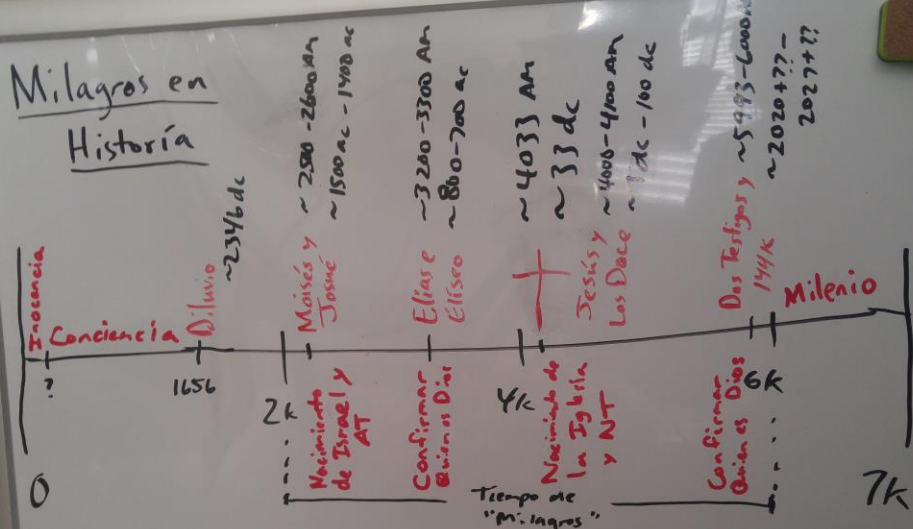 Milagros en
Historía
Inocencia
Conciencia
Diluvio
~2346 dc
Moisés y
Josué
~2500-2600 AM
~1500 ac - 1400 ac
Elías e
Elíseo
~3200-3300 AM
~800-700 ac
~4033 AM
~33 dc
Jesús y
Los Doce
~4000-4100 AM
dc - 100 dc
Dos Testigos y
144k
~5993-6000
~2020+?? -
2027+??
Milenio
?
1656
2k
4k
6k
Nacimiento
de Israel y
AT
Confirmar
Quien es Dios
Nacimiento de
la Iglesia
y NT
Confirmar
Quien es Dios
0
7k
Tiempo de
"Milagros"